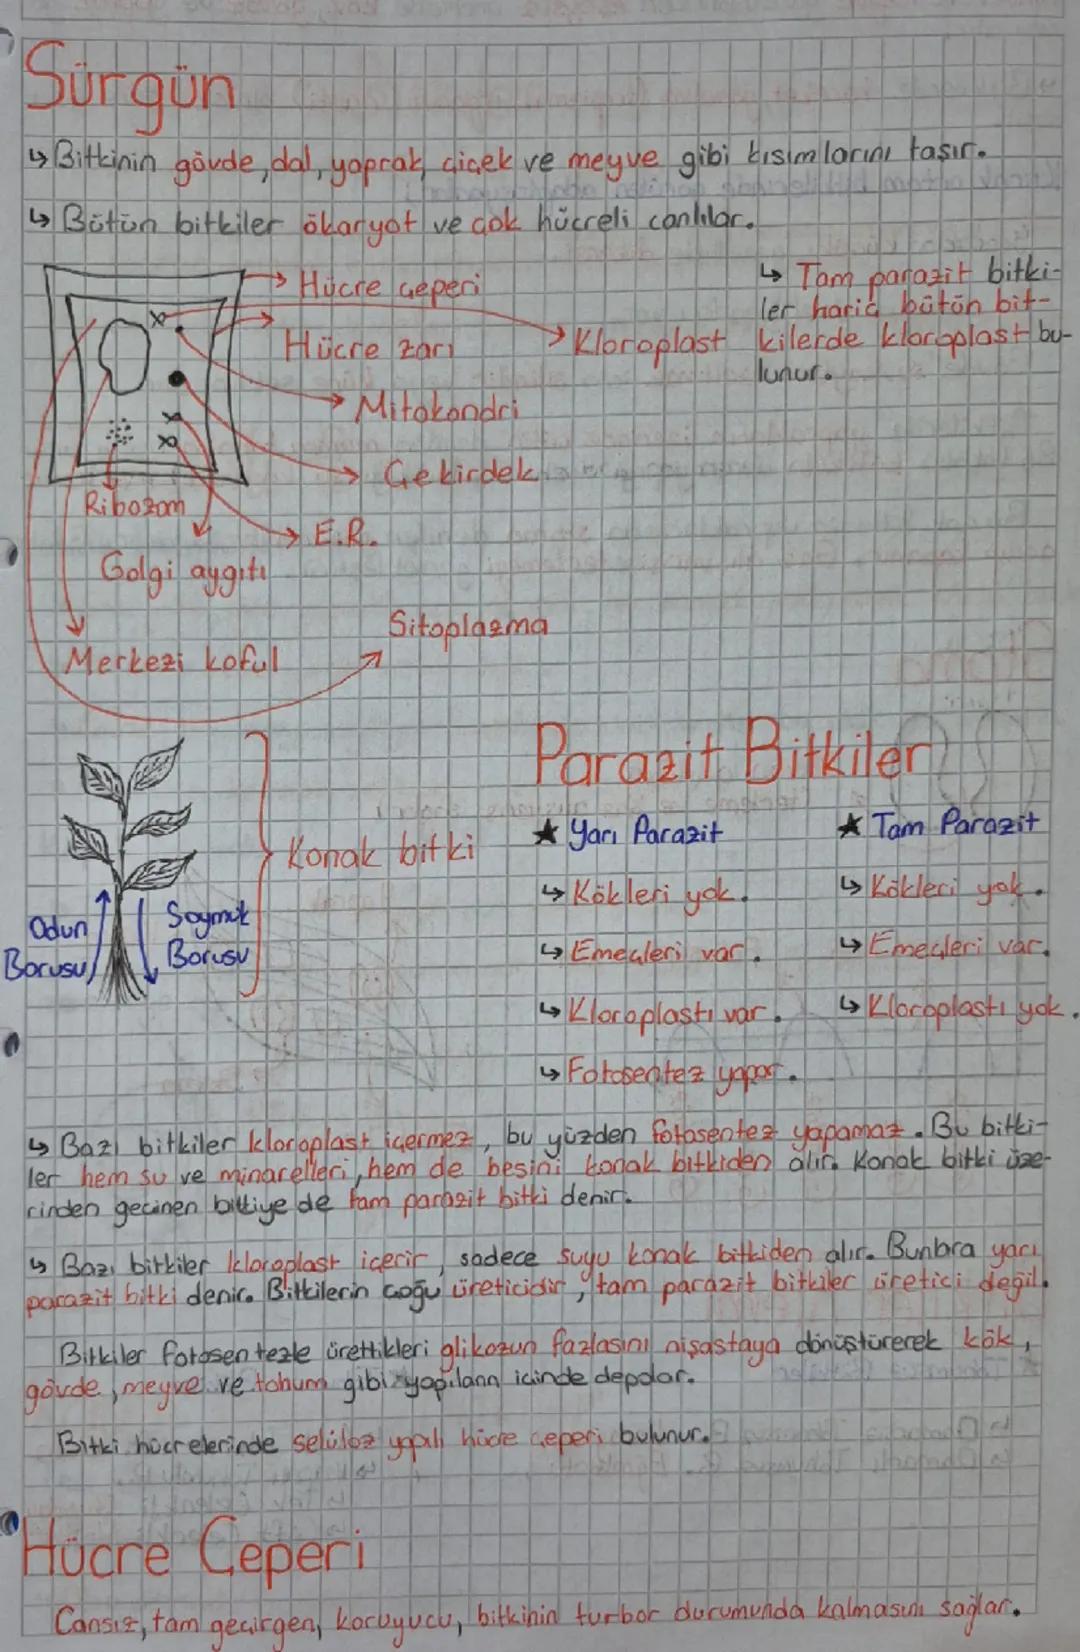 Sürgün
↳ Bitkinin gövde, dal, yaprak, çiçek ve meyve gibi kısımlarını taşır.
↳ Bütün bitkiler ökaryot ve çok hücreli canlılar.
Hücre çeperi
Hücre zarı
Kloroplast
↳ Tam parazit bitki-
ler hariç bütün bit-
kilerde kloroplast bu-
lunur.
Mitokondri
Çekirdek
Ribozom
E.R.
Golgi aygıtı
Sitoplazma
Merkezi koful
Konak bitki
Odun
Borusu
Soymuk
Borusu
Parazit Bitkiler
★ Yarı Parazit
↳ Kökleri yok.
↳ Emeçleri var.
↳ Kloroplastı var.
↳ Fotosentez yapar.
★ Tam Parazit
↳ Kökleri yok.
↳ Emeçleri var.
↳ Kloroplastı yok.
↳ Bazı bitkiler kloroplast içermez, bu yüzden fotosentez yapamaz. Bu bitki-
ler hem su ve minarelleri, hem de besini konak bitkiden alır. Konak bitki üze-
rinden geçinen bitkiye de tam parazit bitki denir.
↳ Bazı bitkiler kloroplast içerir, sadece suyu konak bitkiden alır. Bunlara yarı
parazit bitki denir. Bitkilerin çoğu üreticidir, tam parazit bitkiler üretici değil.
Bitkiler fotosentezle ürettikleri glikozun fazlasını nişastaya dönüştürerek kök,
gövde, meyve ve tohum gibi yapıların içinde depolar.
Bitki hücrelerinde selüloz yapılı hücre çeperi bulunur.
Hücre Çeperi
Cansız, tam geçirgen, koruyucu, bitkinin turbor durumunda kalmasını sağlar.